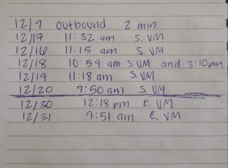 12/9 outbound 2 min
12/17 11:32 am S. VM
12/16 11:15 am S. VM
12/18 10:59 am S. VM and 3:10pm
12/19 11:18 am S. VM
12/20 9:50 am S. VM
12/30 12:18 pm E. VM
12/31 9:51 am E. VM